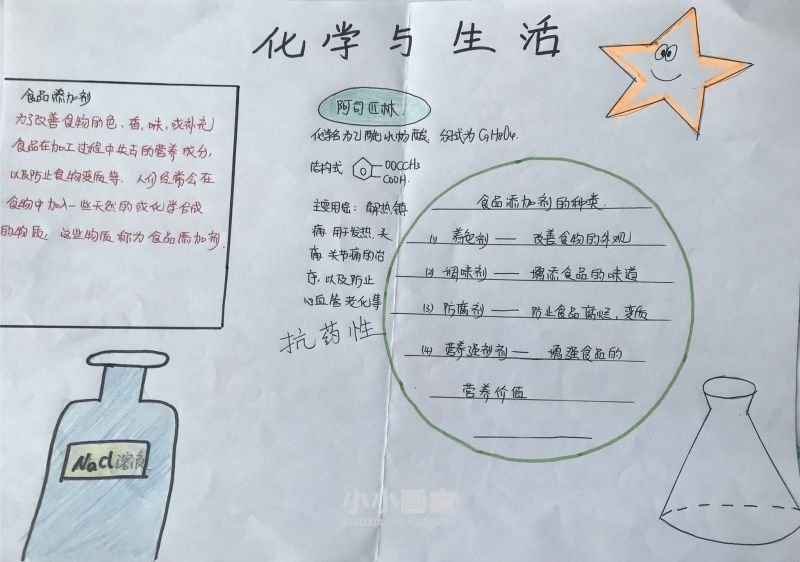 化学与生活
食品添加剂
为了改善食物的色、香、味,或补充
食品在加工过程中失去的营养成分,
以及防止食物变质等,人们经常会在
食物中加入一些天然的或化学合成
的物质,这些物质称为食品添加剂.
阿司匹林.
化学名为乙酰水杨酸,分式为C9H8O4.
结构式
OOCCH3
COOH.
主要用途:解热镇
痛.用于发热.头
痛.关节痛的治
疗,以及防止
心血管老化等
抗药性
食品添加剂的种类.
(1) 着色剂——改善食物的外观
(2) 调味剂——增添食品的味道
(3) 防腐剂——防止食品腐烂,变质
(4) 营养强剂——增强食品的
营养价值
NaCl溶液
小小画家
XIAOXIAOHUAJIA.COM